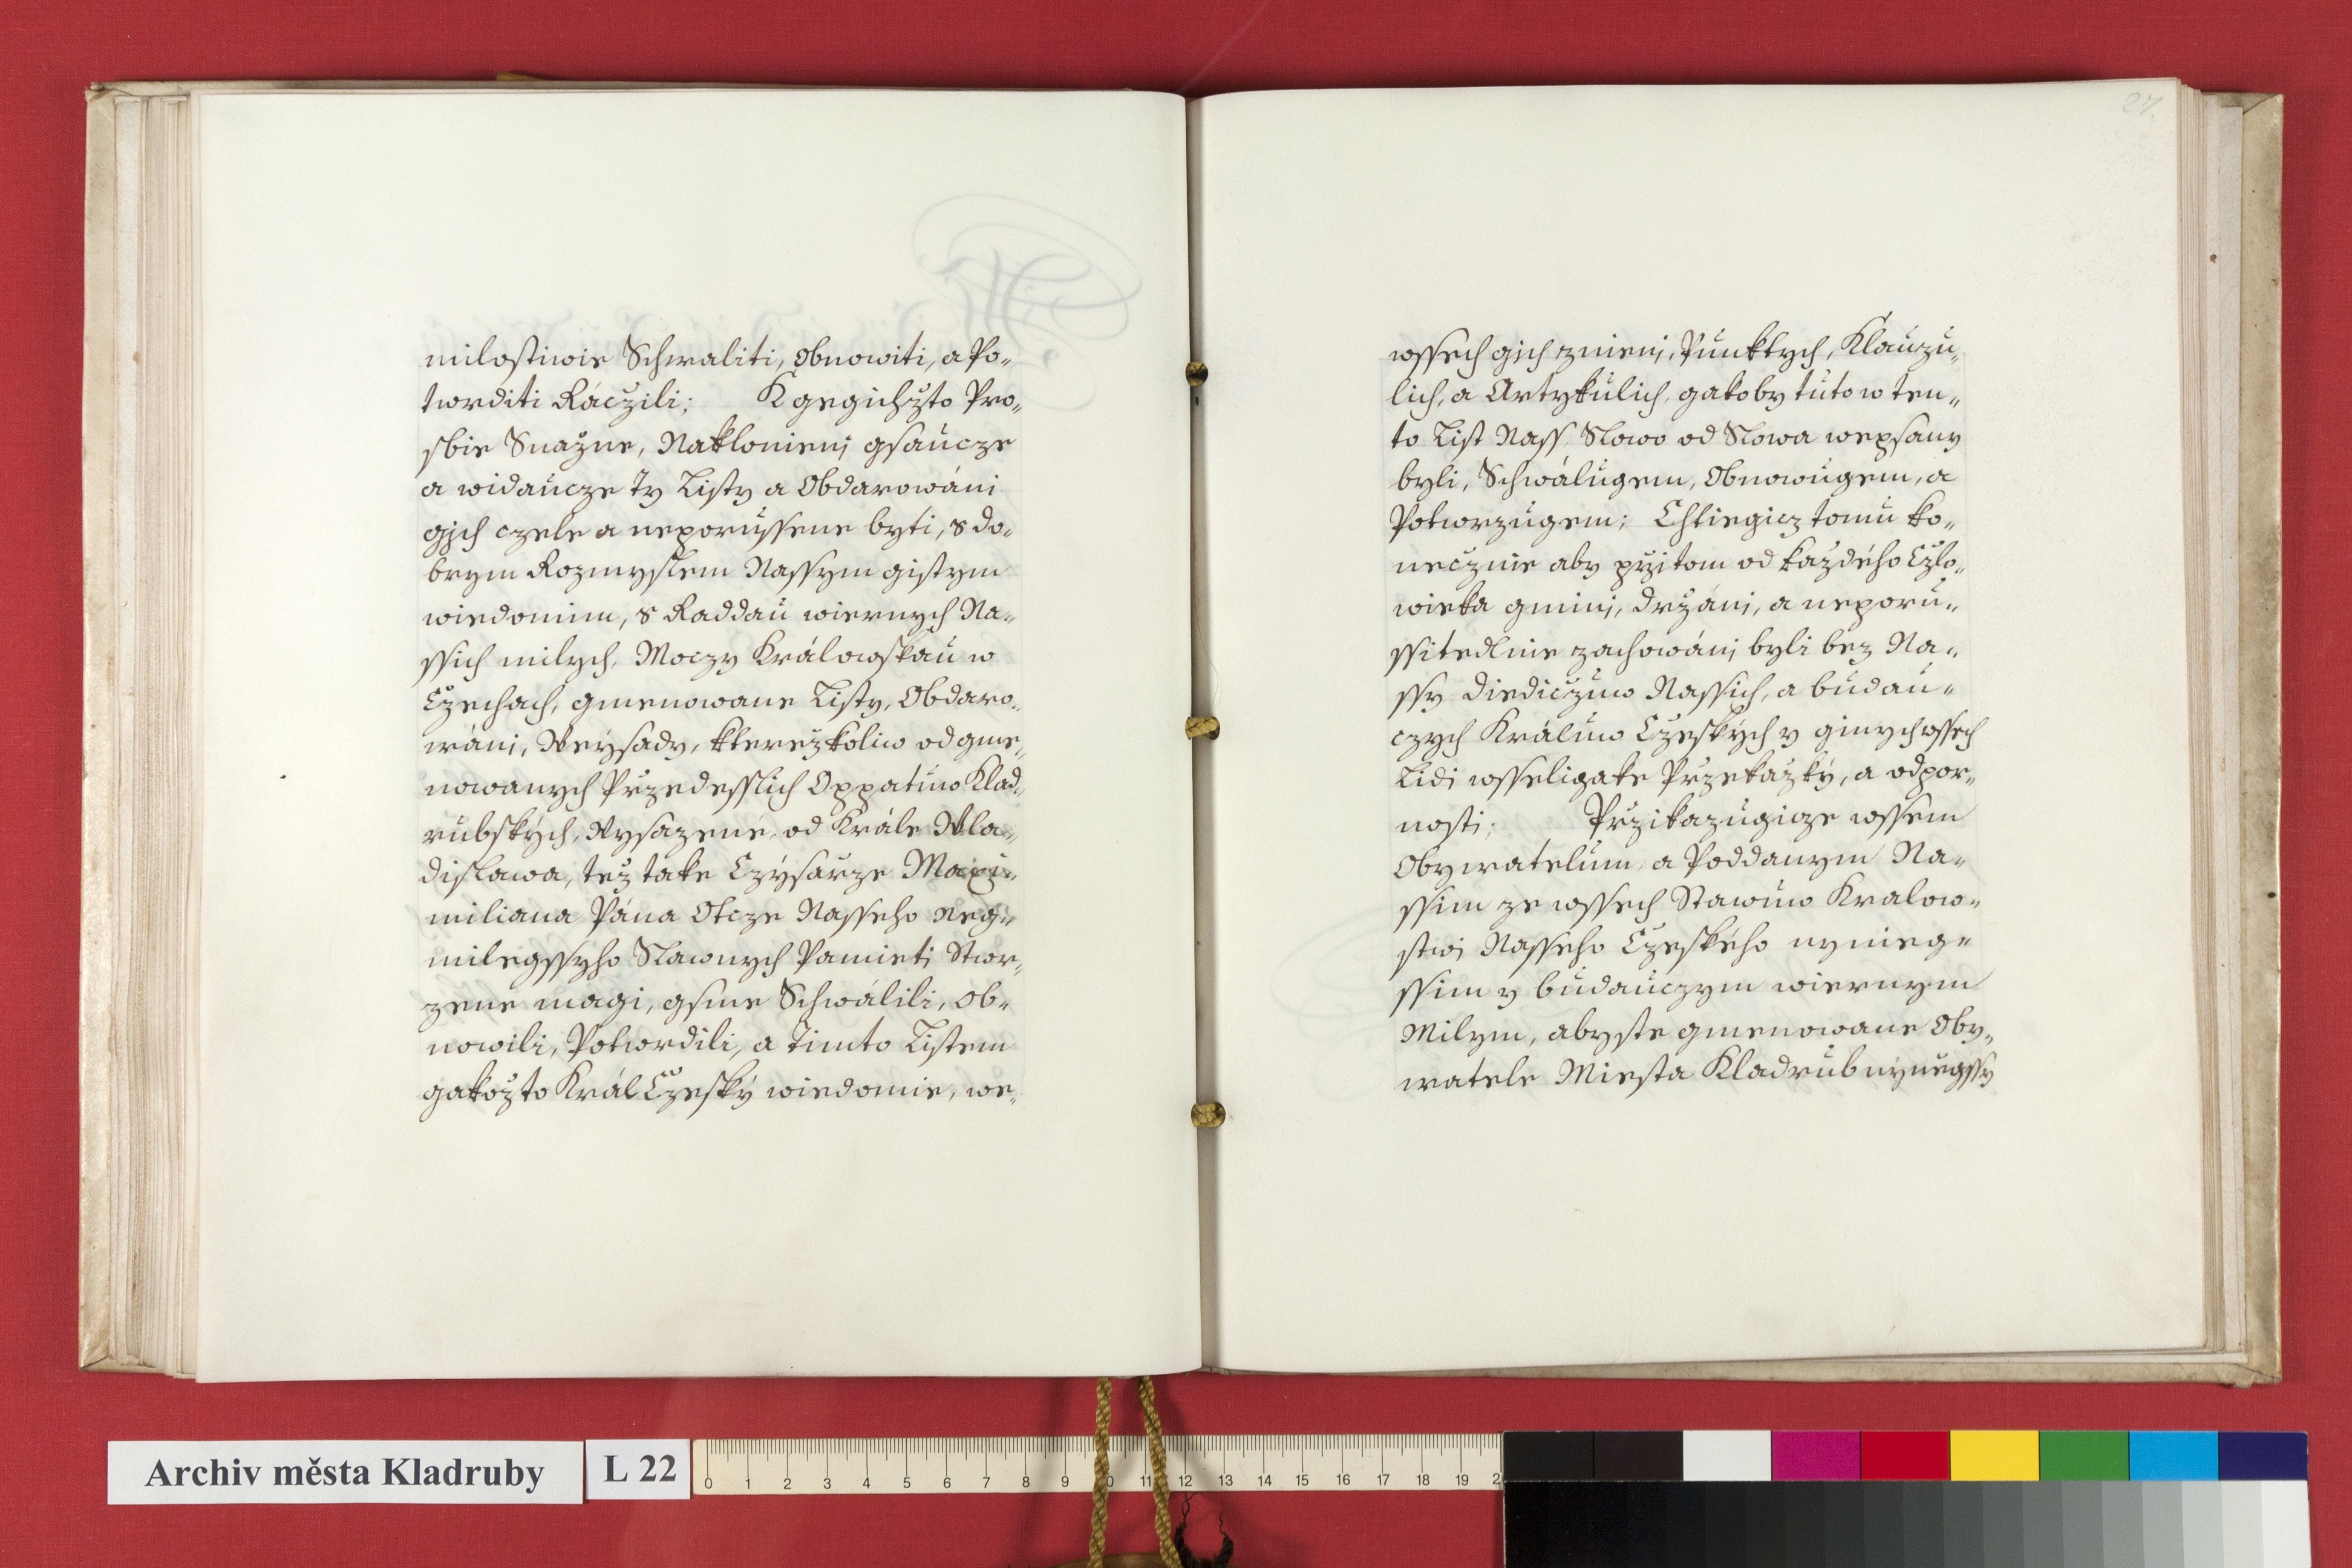 milostiwie Schwaliti, obnowiti, a Po„
twrditi Ráczili; K gegichžto Pro„
sbie Snažne, Naklonieni gsaucze
a widaucze Ty Listy a Obdarowáni
gjch czele a neporussene byti, s do„
brym Rozmyslem Nassym gistym
wiedomim, s Raddau wiernych Na„
ssich milych, Moczy Králowskau w
Czechach, gmenowane Listy, Obdaro„
wáni, Weysady, kterežkoliw od gme„
nowanych Przedesslich Oppatuw Klad„
rubských, Wysazené, od Krále Wla„
dislawa, též take Czýsarze Maxi„
miliana Pána Otcze Nasseho Neg„
milegssyho Slawnych Pamieti Stwr„
zene magi, gsme Schwálili, Ob„
nowili, Potwrdili, a Timto Listem
gakožto Král Czeský wiedomie, we„
27.
wssech gjch znieni, Punktych, Klauzu„
lich, a Artykulich, gakoby tuto w ten„
to List Nass Slowo od Slowa wepsany
byli, Schwálugem, Obnowugem, a
Potwrzugem; Chtiegicz tomu ko„
necznie aby przitom od každého Czlo„
wieka gmini, držáni, a neporu„
ssitedlnie zachowáni byli bez Na„
ssy Diediczuw Nassich, a budau„
czych Králuw Czeských y ginych wssech
Lidi wsseligake Przekažký, a odpor„
nosti; Przikazugicze wssem
Obywatelum, a Poddanym Na„
ssim ze wssech Stawuw Kralow„
stwi Nasseho Czeského nynieg„
ssim y budauczym wiernym
Milym, abyste gmenowane Oby„
watele Miesta Kladrub nýnegssy
Archiv města Kladruby
L 22
0 1 2 3 4 5 6 7 8 9 10 11 12 13 14 15 16 17 18 19 2